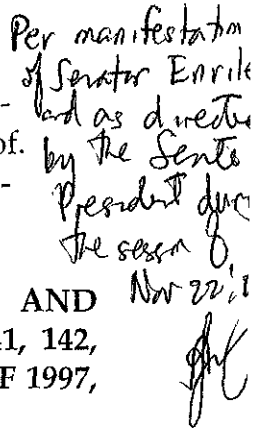 Per manifestation
of Senator Enrile
and as directed
of.
by the Senate
President during
the session of
Nov 22,
AND
41, 142,
F 1997,